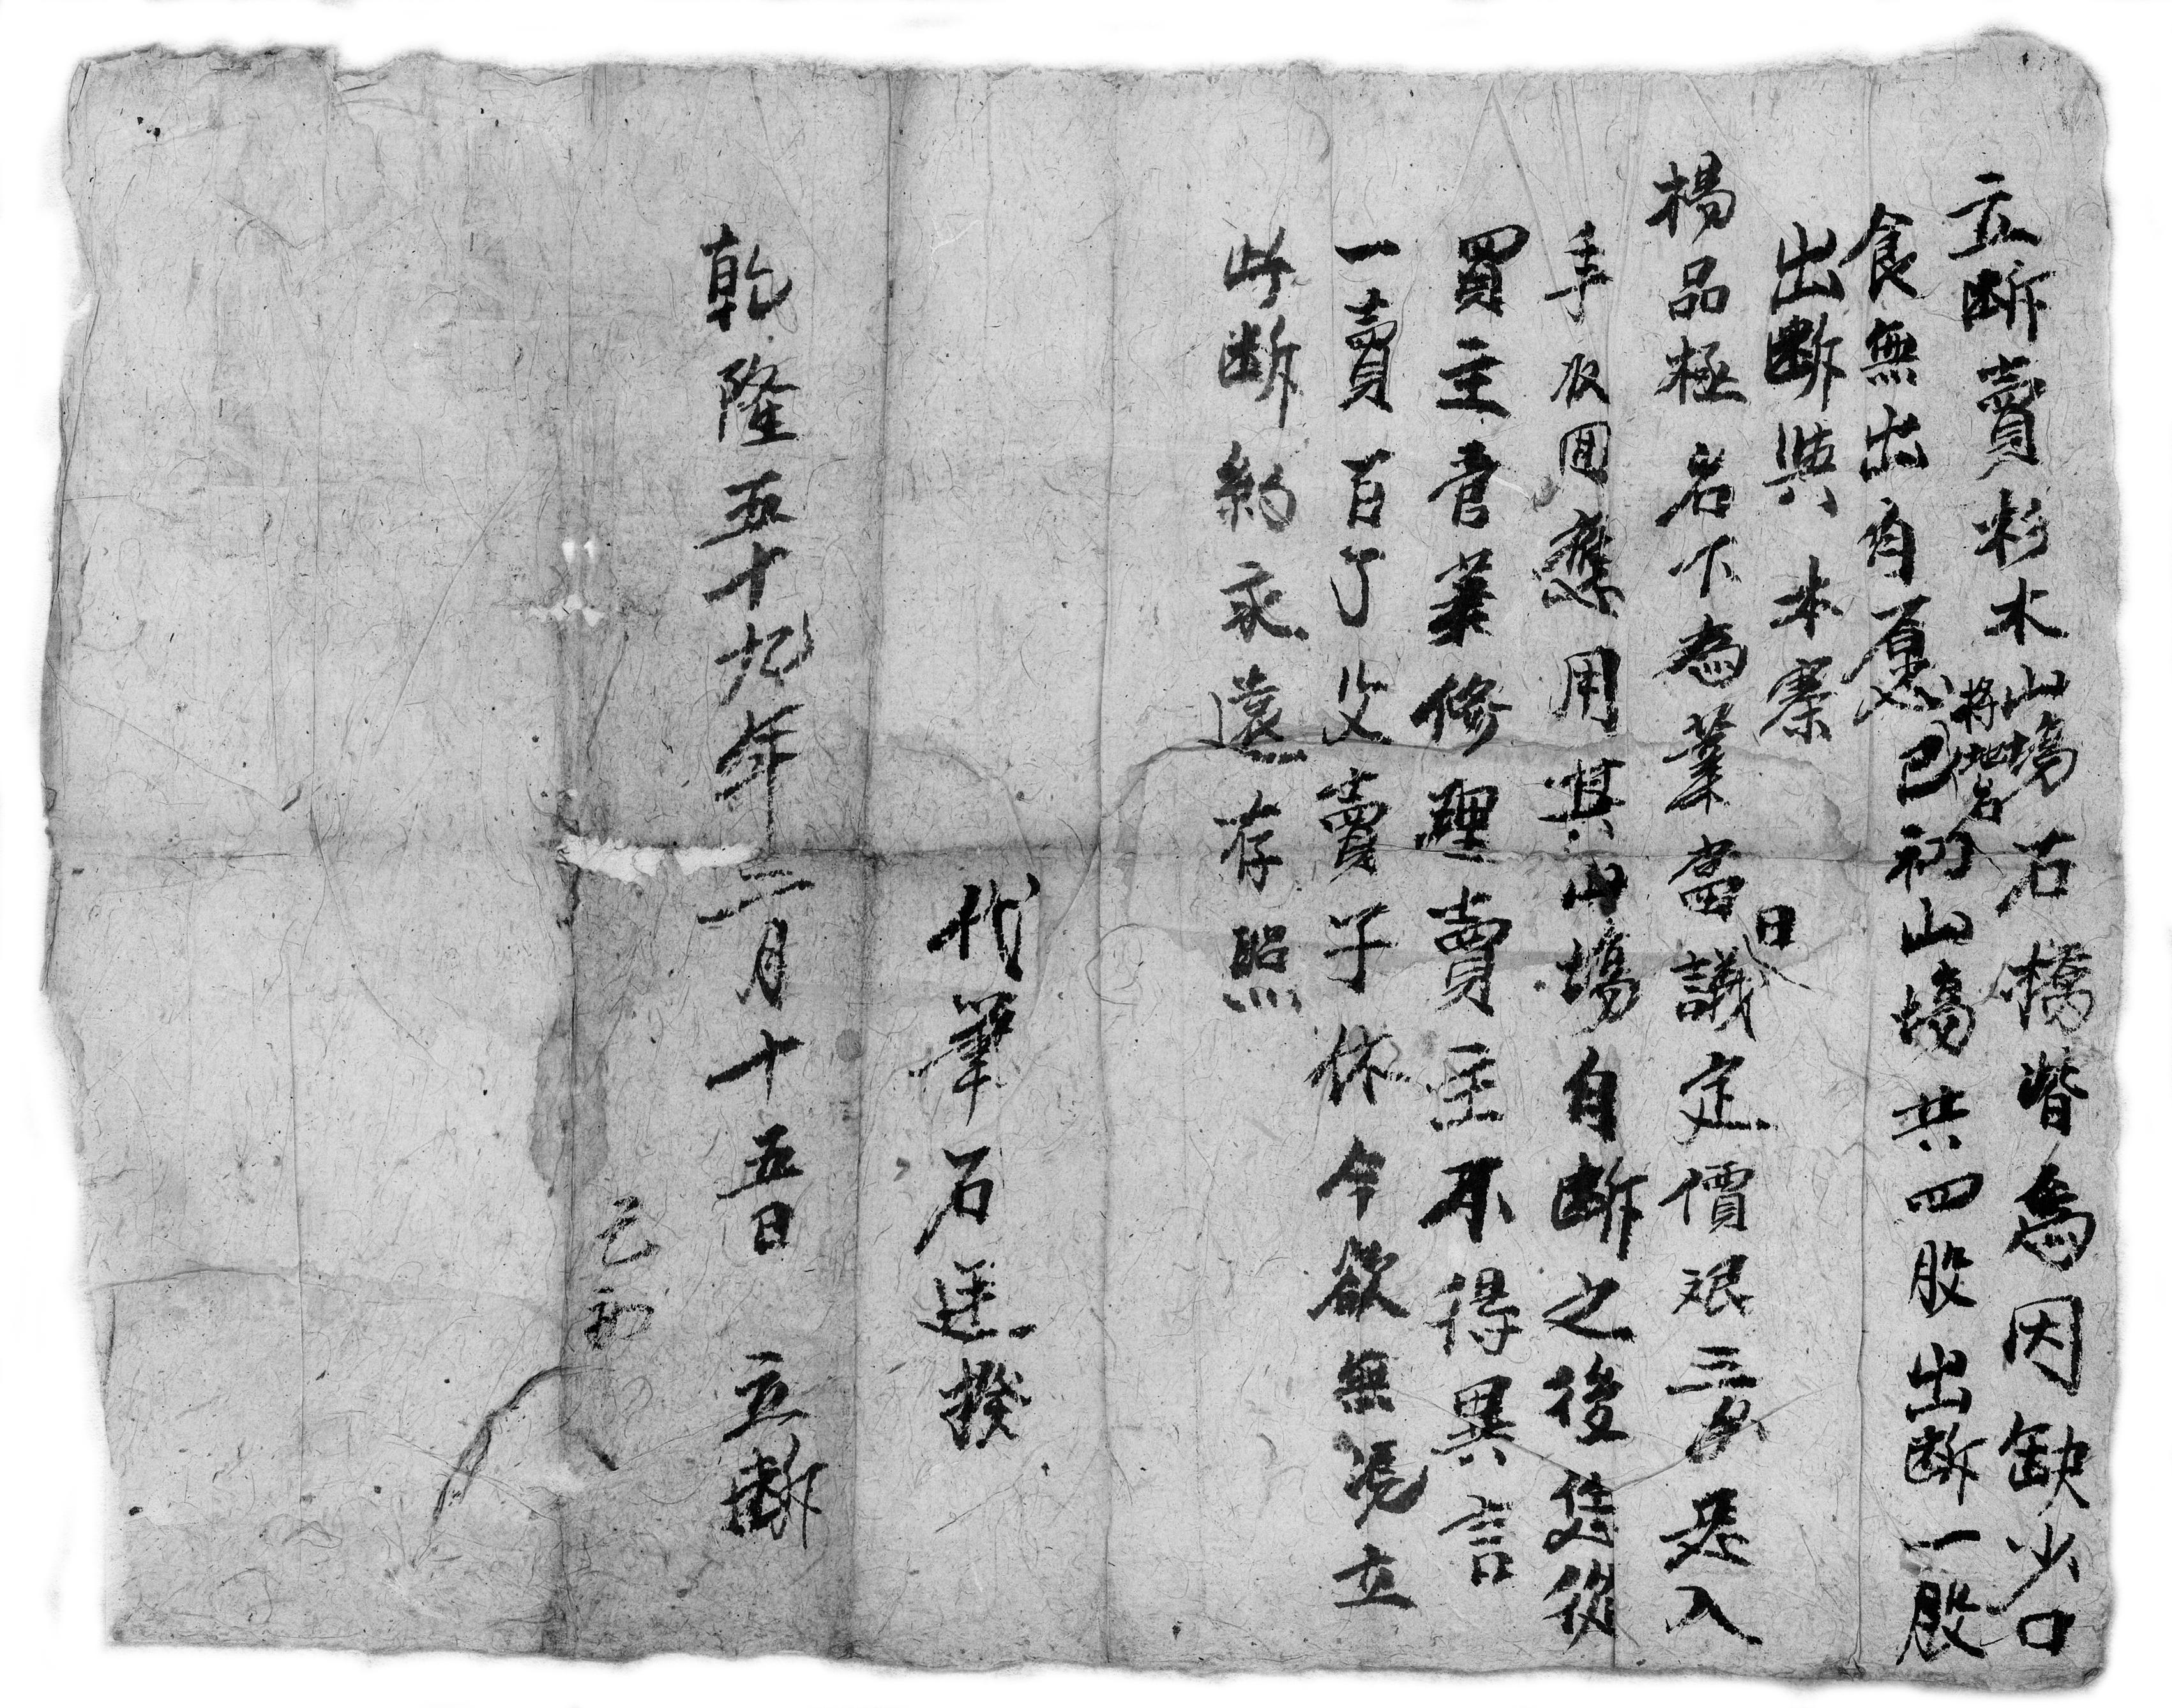 立断賣杉木山塲石橋皆為因缺少口
食無出自愿將地名巴初山塲共四股出断一股
出断與本寨
楊品極名下為業當日議定價艮三錢是入
手収回應用其山塲自断之後恁從
買主管業修理賣主不得異言
一賣百了父賣子休今欲無凴立
此断約永遠存照
代筆石廷撥
乾隆五十九年二月十五日 立断